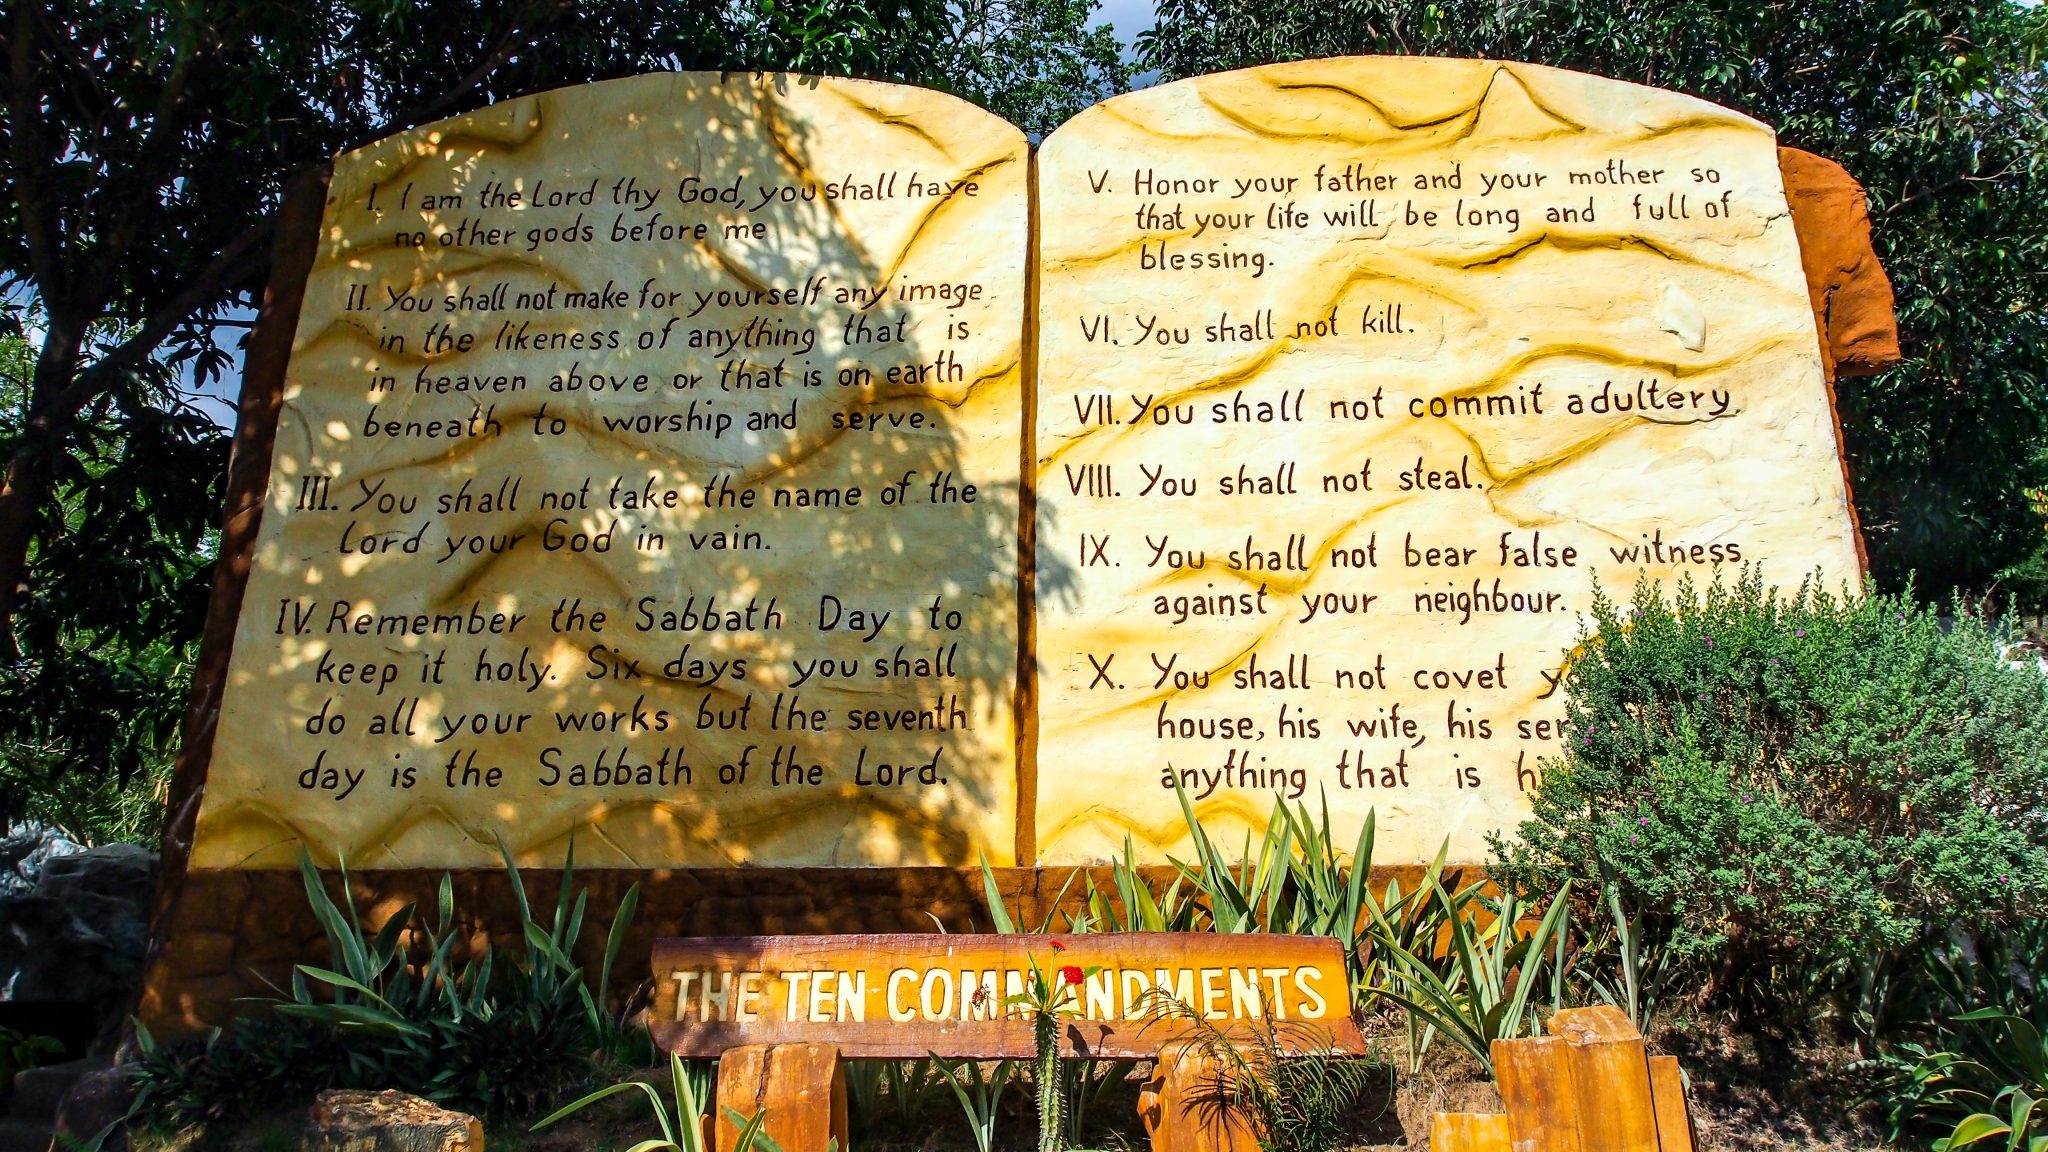 I. I am the Lord thy God, you shall have
no other gods before me
II. You shall not make for yourself any image
in the likeness of anything that is
in heaven above or that is on earth
beneath to worship and serve.
III. You shall not take the name of the
Lord your God in vain.
IV. Remember the Sabbath Day to
keep it holy. Six days you shall
do all your works but the seventh
day is the Sabbath of the Lord.
V. Honor your father and your mother so
that your life will be long and full of
blessing.
VI. You shall not kill.
VII. You shall not commit adultery.
VIII. You shall not steal.
IX. You shall not bear false witness
against your neighbour.
X. You shall not covet
house, his wife, his
anything that is
THE TEN COMMANDMENTS